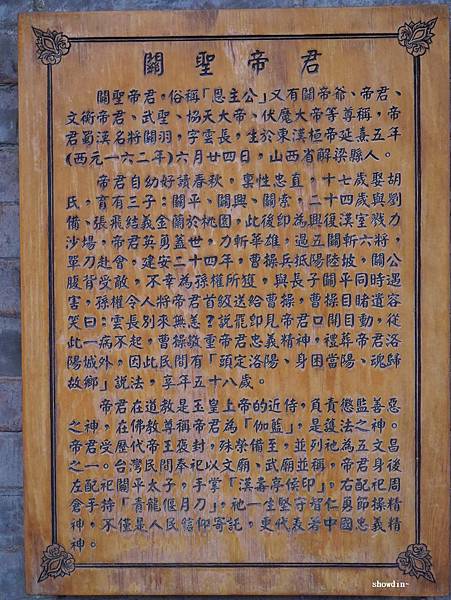 關聖帝君
關聖帝君，俗稱「恩主公」又有關帝爺、帝君、
文衡帝君、武聖、協天大帝、伏魔大帝等尊稱，帝
君蜀漢名將關羽，字雲長，生於東漢桓帝延熹五年
(西元一六二年)六月廿四日，山西省解梁縣人。
帝君自幼好讀春秋，稟性忠直，十七歲娶胡
氏，育有三子：關平、關興、關索，二十四歲與劉
備、張飛結義金蘭於桃園，此後即為興復漢室戮力
沙場，帝君英勇蓋世，力斬華雄，過五關斬六將，
單刀赴會。建安二十四年，曹操兵抵陽陸坡，關公
腹背受敵，不幸為孫權所獲，與長子關平同時遇
害，孫權令人將帝君首級送給曹操，曹操目睹遺容
笑曰：雲長別來無恙？說罷即見帝君口開目動，從
此一病不起，曹操敬重帝君忠義精神，禮葬帝君洛
陽城外，因此民間有「頭定洛陽、身困當陽、魂歸
故鄉」說法，享年五十八歲。
帝君在道教是玉皇上帝的近侍，負責懲監善惡
之神，在佛教尊稱帝君為「伽藍」，是護法之神。
帝君受歷代帝王褒封，殊榮備至，並列祂為五文昌
之一。台灣民間奉祀以文廟、武廟並稱，帝君身後
左配祀關平太子，手掌「漢壽亭侯印」。右配祀周
倉手持「青龍偃月刀」，祂一生堅守智仁勇節操精
神，不僅是人民信仰寄託，更代表著中國忠義精
神。
showdin~